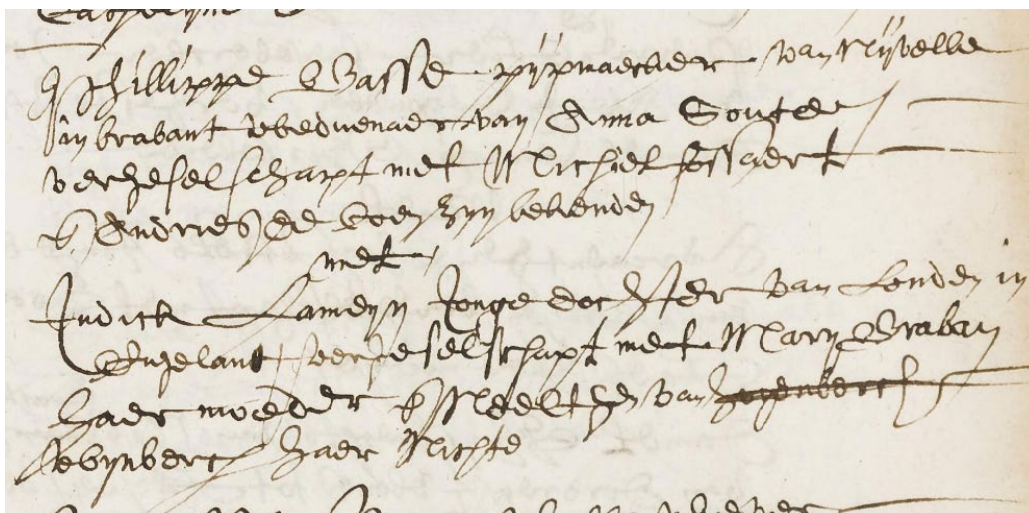 Phillippe Basse pijpmaecker van Nijvelle
in brabant weduenaer van Anna Soute
verheselschapt met Michiel fossaert
& Andries de Coen zijn bekenden
met
Judick Lameyn Jonge dochter van Londen in
Engelant, verheselschapt met Mary Braban
haer moeder & Neeltgen van
haer Nichte